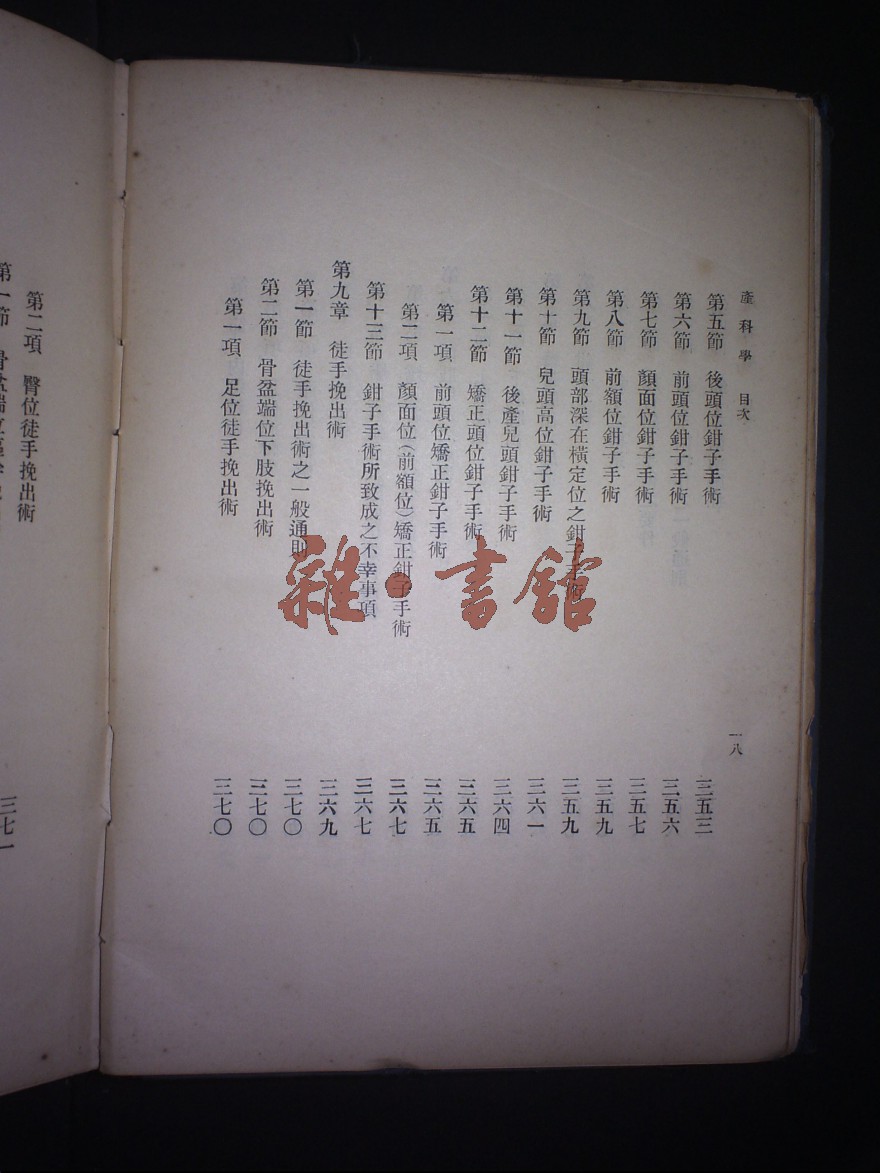 產科學 目次
一八
第五節 後頭位鉗子手術 三五三
第六節 前頭位鉗子手術 三五六
第七節 顏面位鉗子手術 三五七
第八節 前額位鉗子手術 三五九
第九節 頭部深在橫定位之鉗子手術 三五九
第十節 兒頭高位鉗子手術 三六一
第十一節 後產兒頭鉗子手術 三六四
第十二節 矯正頭位鉗子手術 三六五
第一項 前頭位矯正鉗子手術 三六五
第二項 顏面位(前額位)矯正鉗子手術 三六七
第十三節 鉗子手術所致成之不幸事項 三六七
第九章 徒手挽出術 三六九
第一節 徒手挽出術之一般通則 三七〇
第二節 骨盆端位下肢挽出術 三七〇
第一項 足位徒手挽出術 三七〇
第二項 臀位徒手挽出術
三七一
雜·書館